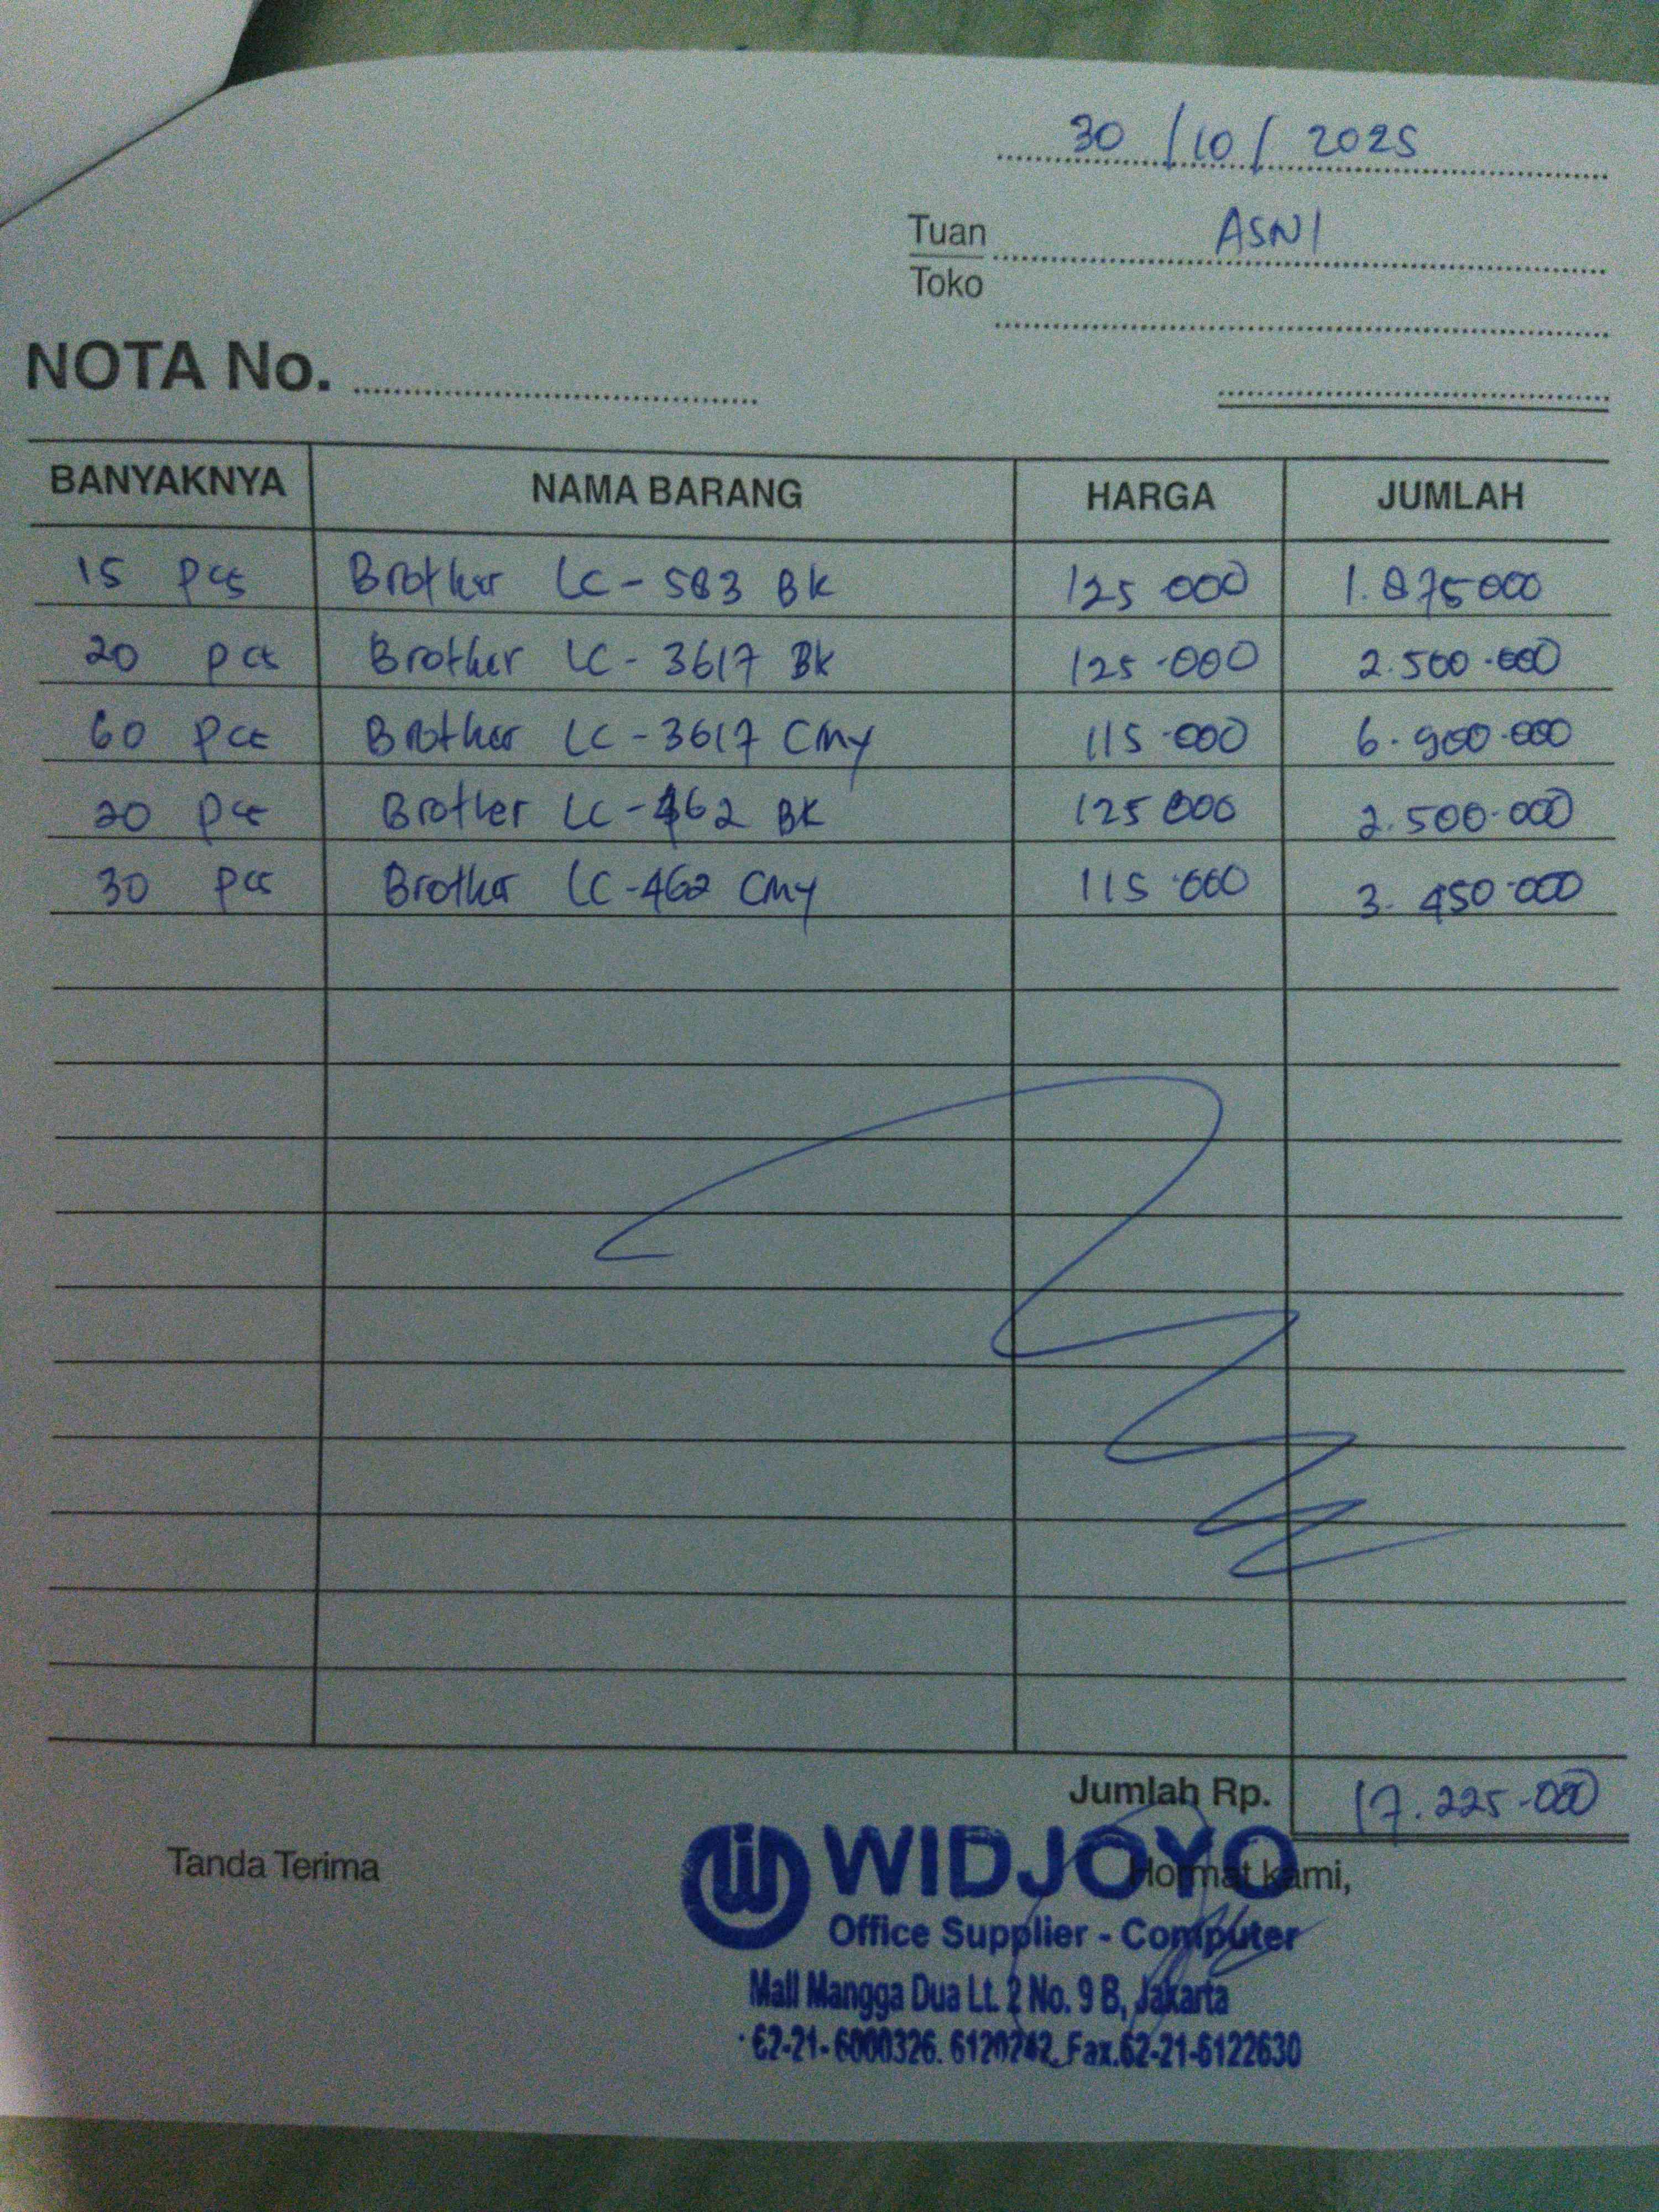 30 / 10 / 2025
Tuan ASNI
Toko
NOTA No.
BANYAKNYA NAMA BARANG HARGA JUMLAH
15 pcs Brother LC-583 BK 125 000 1.875 000
20 pcs Brother LC-3617 BK 125.000 2.500.000
60 pcs Brother LC-3617 CMY 115.000 6.900.000
20 pcs Brother LC-462 BK 125 000 2.500.000
30 pcs Brother LC-462 CMY 115.000 3.450.000
Jumlah Rp. 17.225.000
Tanda Terima Hormat kami,
WIDJOYO
Office Supplier - Computer
Mall Mangga Dua Lt. 2 No. 9 B, Jakarta
62-21-6000326. 6120242 Fax.62-21-6122630